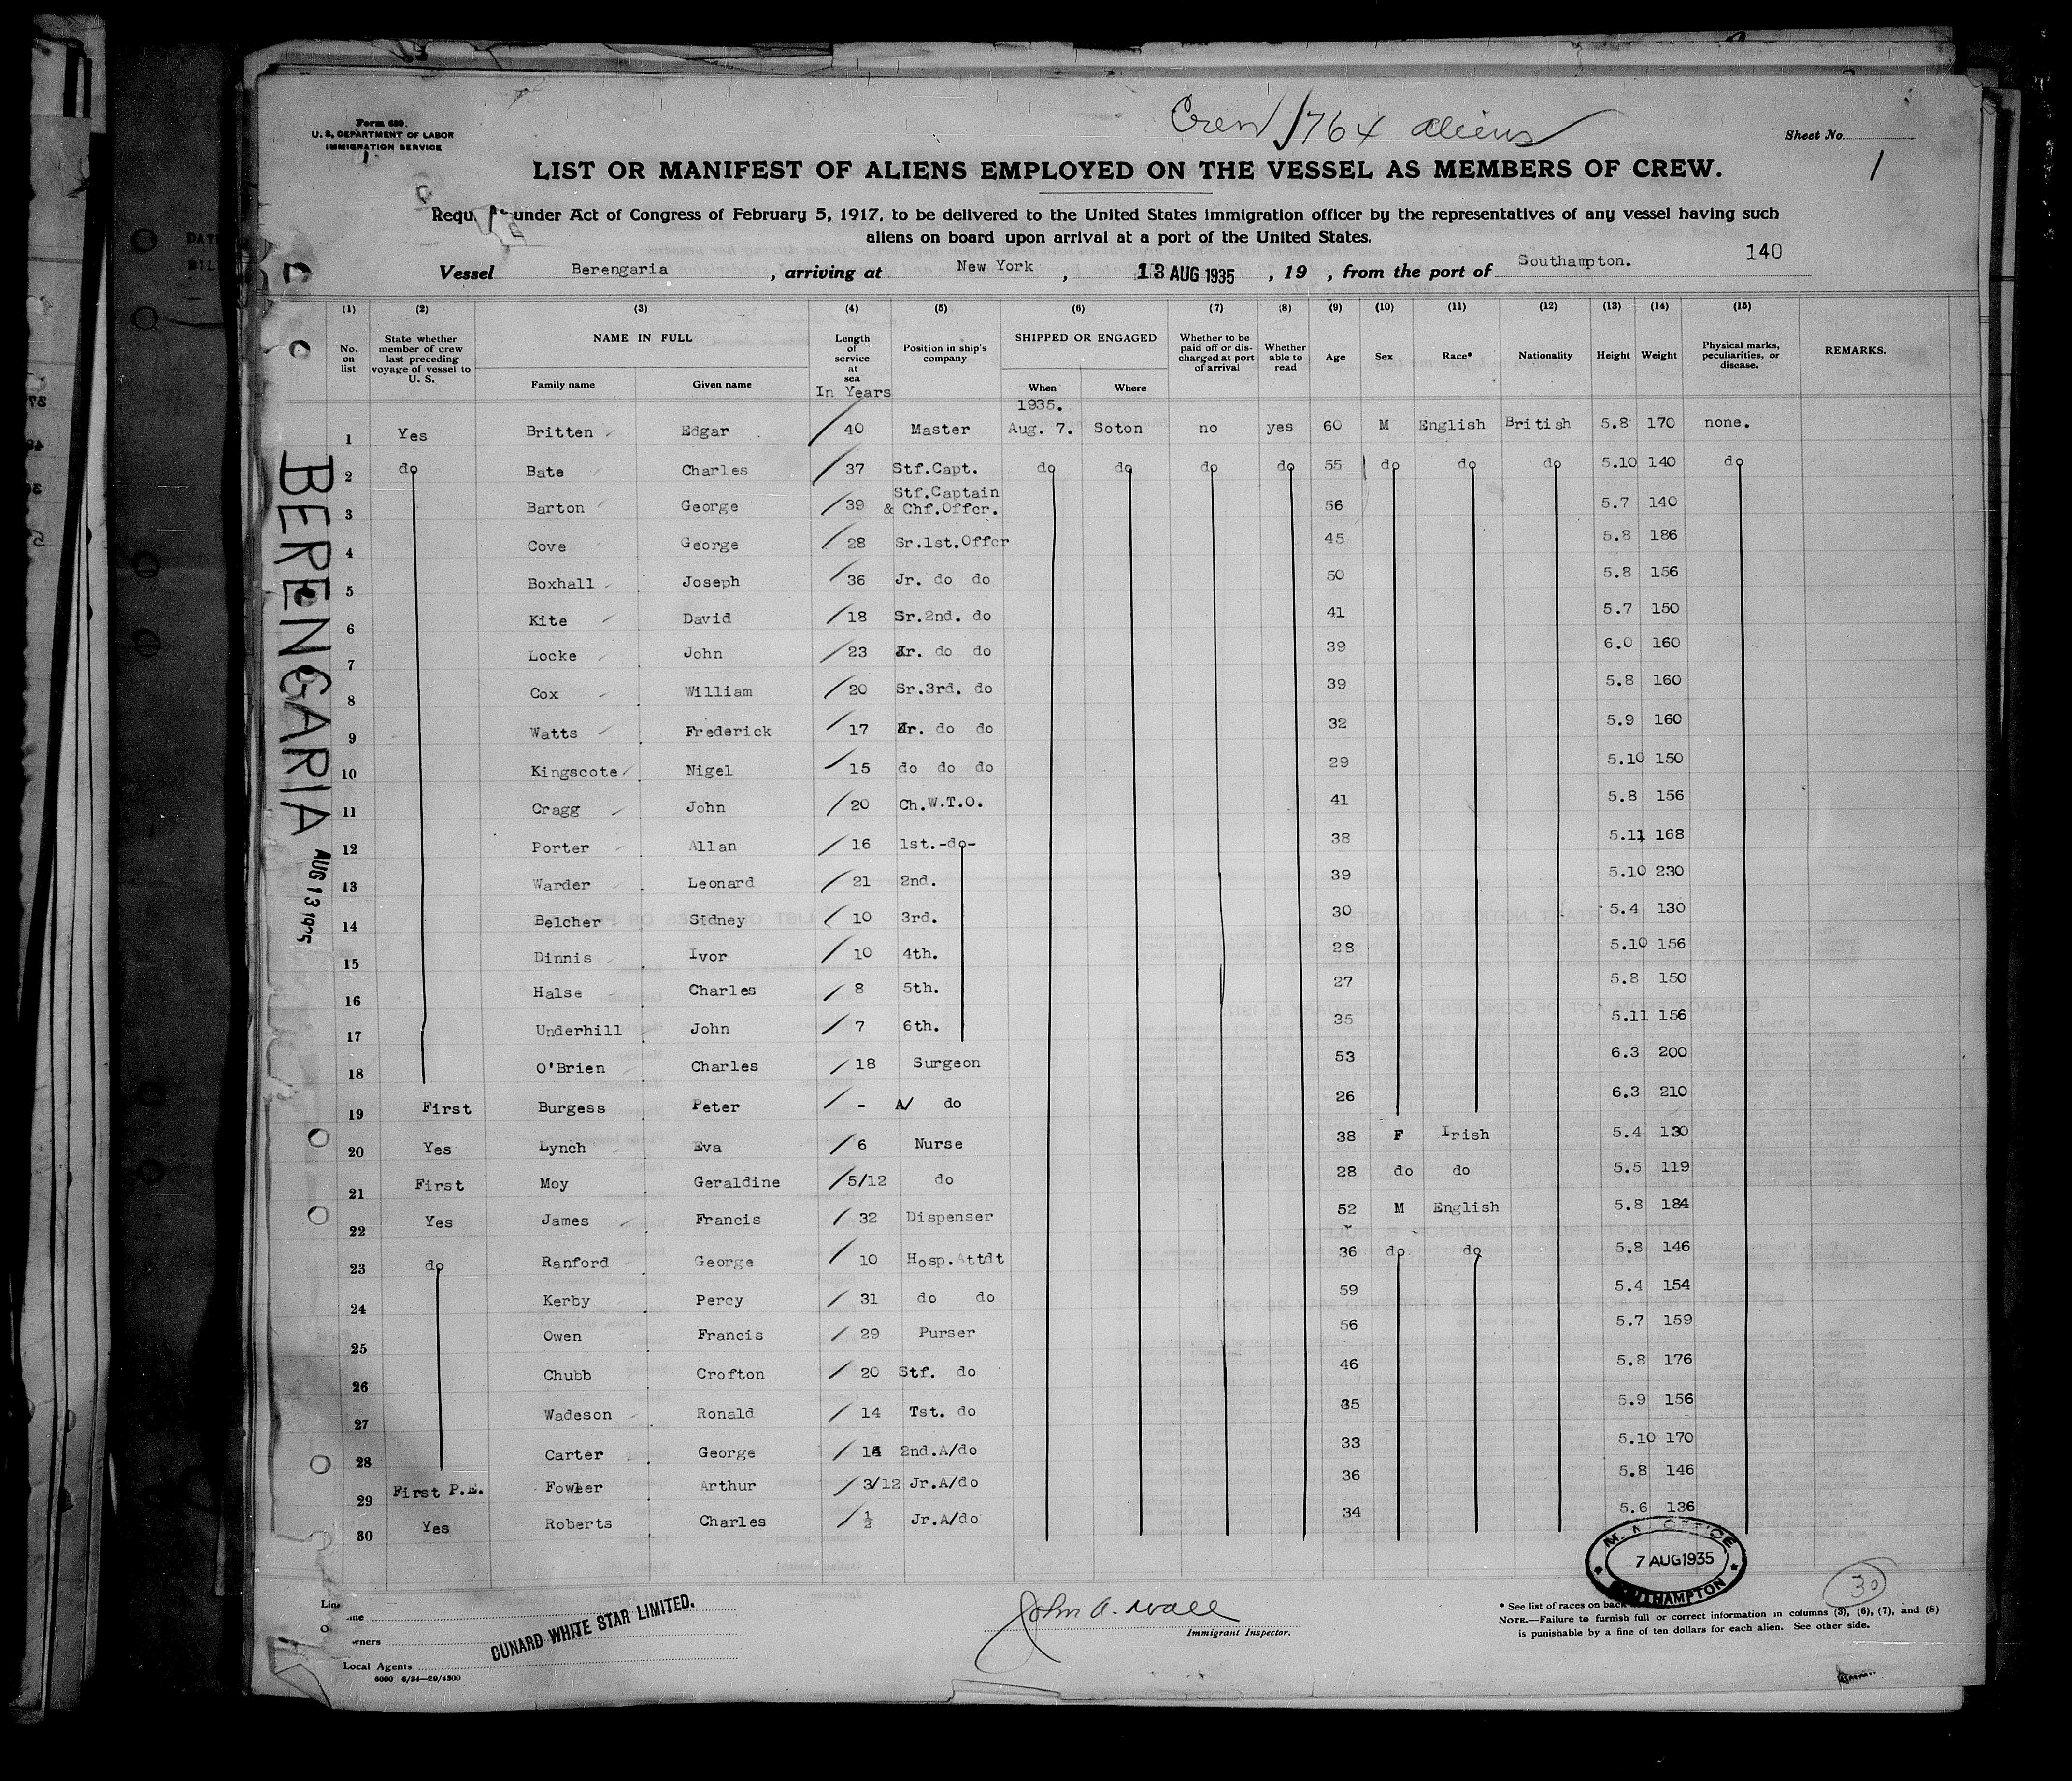 Form 680.
U. S. DEPARTMENT OF LABOR
IMMIGRATION SERVICE
Crew 764 aliens
Sheet No.
1
LIST OR MANIFEST OF ALIENS EMPLOYED ON THE VESSEL AS MEMBERS OF CREW.
under Act of Congress of February 5, 1917, to be delivered to the United States immigration officer by the representatives of any vessel having such
aliens on board upon arrival at a port of the United States.
140
Vessel Berengaria, arriving at New York, 13 AUG 1935, 19 , from the port of Southampton.
(1) (2) (3) (4) (5) (6) (7) (8) (9) (10) (11) (12) (13) (14) (15)
No. on list State whether member of crew last preceding voyage of vessel to U. S. NAME IN FULL Family name Given name Length of service at sea In Years Position in ship's company SHIPPED OR ENGAGED When Where Whether to be paid off or discharged at port of arrival Whether able to read Age Sex Race* Nationality Height Weight Physical marks, peculiarities, or disease. REMARKS.
1935.
1 Yes Britten Edgar 40 Master Aug. 7. Soton no yes 60 M English British 5.8 170 none.
2 do Bate Charles 37 Stf.Capt. do do do do 55 do do do 5.10 140 do
3 Barton George 39 Stf.Captain & Chf.Offcr. 56 5.7 140
4 Cove George 28 Sr.1st.Offcr 45 5.8 186
5 Boxhall Joseph 36 Jr. do do 50 5.8 156
6 Kite David 18 Sr.2nd. do 41 5.7 150
7 Locke John 23 Jr. do do 39 6.0 160
8 Cox William 20 Sr.3rd. do 39 5.8 160
9 Watts Frederick 17 Jr. do do 32 5.9 160
10 Kingscote Nigel 15 do do do 29 5.10 150
11 Cragg John 20 Ch.W.T.O. 41 5.8 156
12 Porter Allan 16 1st.-do- 38 5.11 168
13 Warder Leonard 21 2nd. 39 5.10 230
14 Belcher Sidney 10 3rd. 30 5.4 130
15 Dinnis Ivor 10 4th. 28 5.10 156
16 Halse Charles 8 5th. 27 5.8 150
17 Underhill John 7 6th. 35 5.11 156
18 O'Brien Charles 18 Surgeon 53 6.3 200
19 First Burgess Peter - A/ do 26 6.3 210
20 Yes Lynch Eva 6 Nurse 38 F Irish 5.4 130
21 First Moy Geraldine 5/12 do 28 do do 5.5 119
22 Yes James Francis 32 Dispenser 52 M English 5.8 184
23 do Ranford George 10 Hosp.Attdt 36 do do 5.8 146
24 Kerby Percy 31 do do 59 5.4 154
25 Owen Francis 29 Purser 56 5.7 159
26 Chubb Crofton 20 Stf. do 46 5.8 176
27 Wadeson Ronald 14 Tst. do 35 5.9 156
28 Carter George 14 2nd.A/do 33 5.10 170
29 First P.E. Fowler Arthur 3/12 Jr.A/do 36 5.8 146
30 Yes Roberts Charles ½ Jr.A/do 34 5.6 136
BERENGARIA AUG 13 1935
OFFICE
7 AUG 1935
SOUTHAMPTON
30
Line
Owners
CUNARD WHITE STAR LIMITED.
Local Agents
6000 6/34—29/4300
John A. Wall
Immigrant Inspector.
* See list of races on back
NOTE.—Failure to furnish full or correct information in columns (3), (6), (7), and (8)
is punishable by a fine of ten dollars for each alien. See other side.